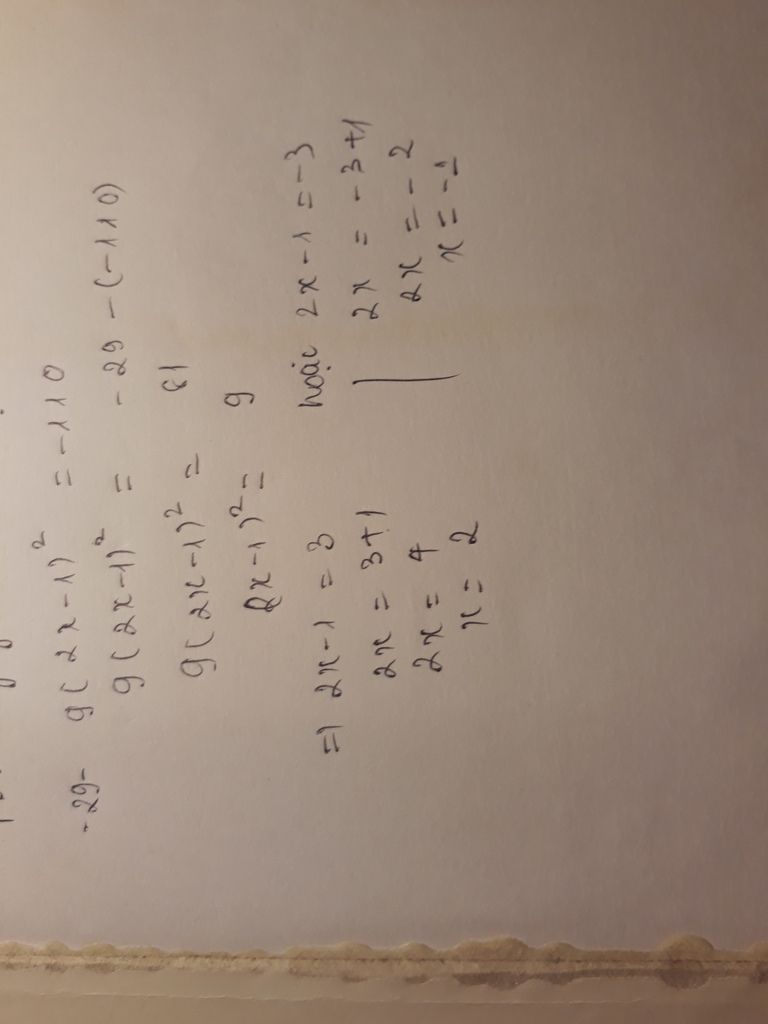 -29- 9(2x-1)² = -110
9(2x-1)² = -29-(-110)
9(2x-1)² = 81
(2x-1)² = 9
=) 2x-1 = 3 hoặc 2x-1 = -3
2x = 3+1 | 2x = -3+1
2x = 4 | 2x = -2
x = 2 | x = -1